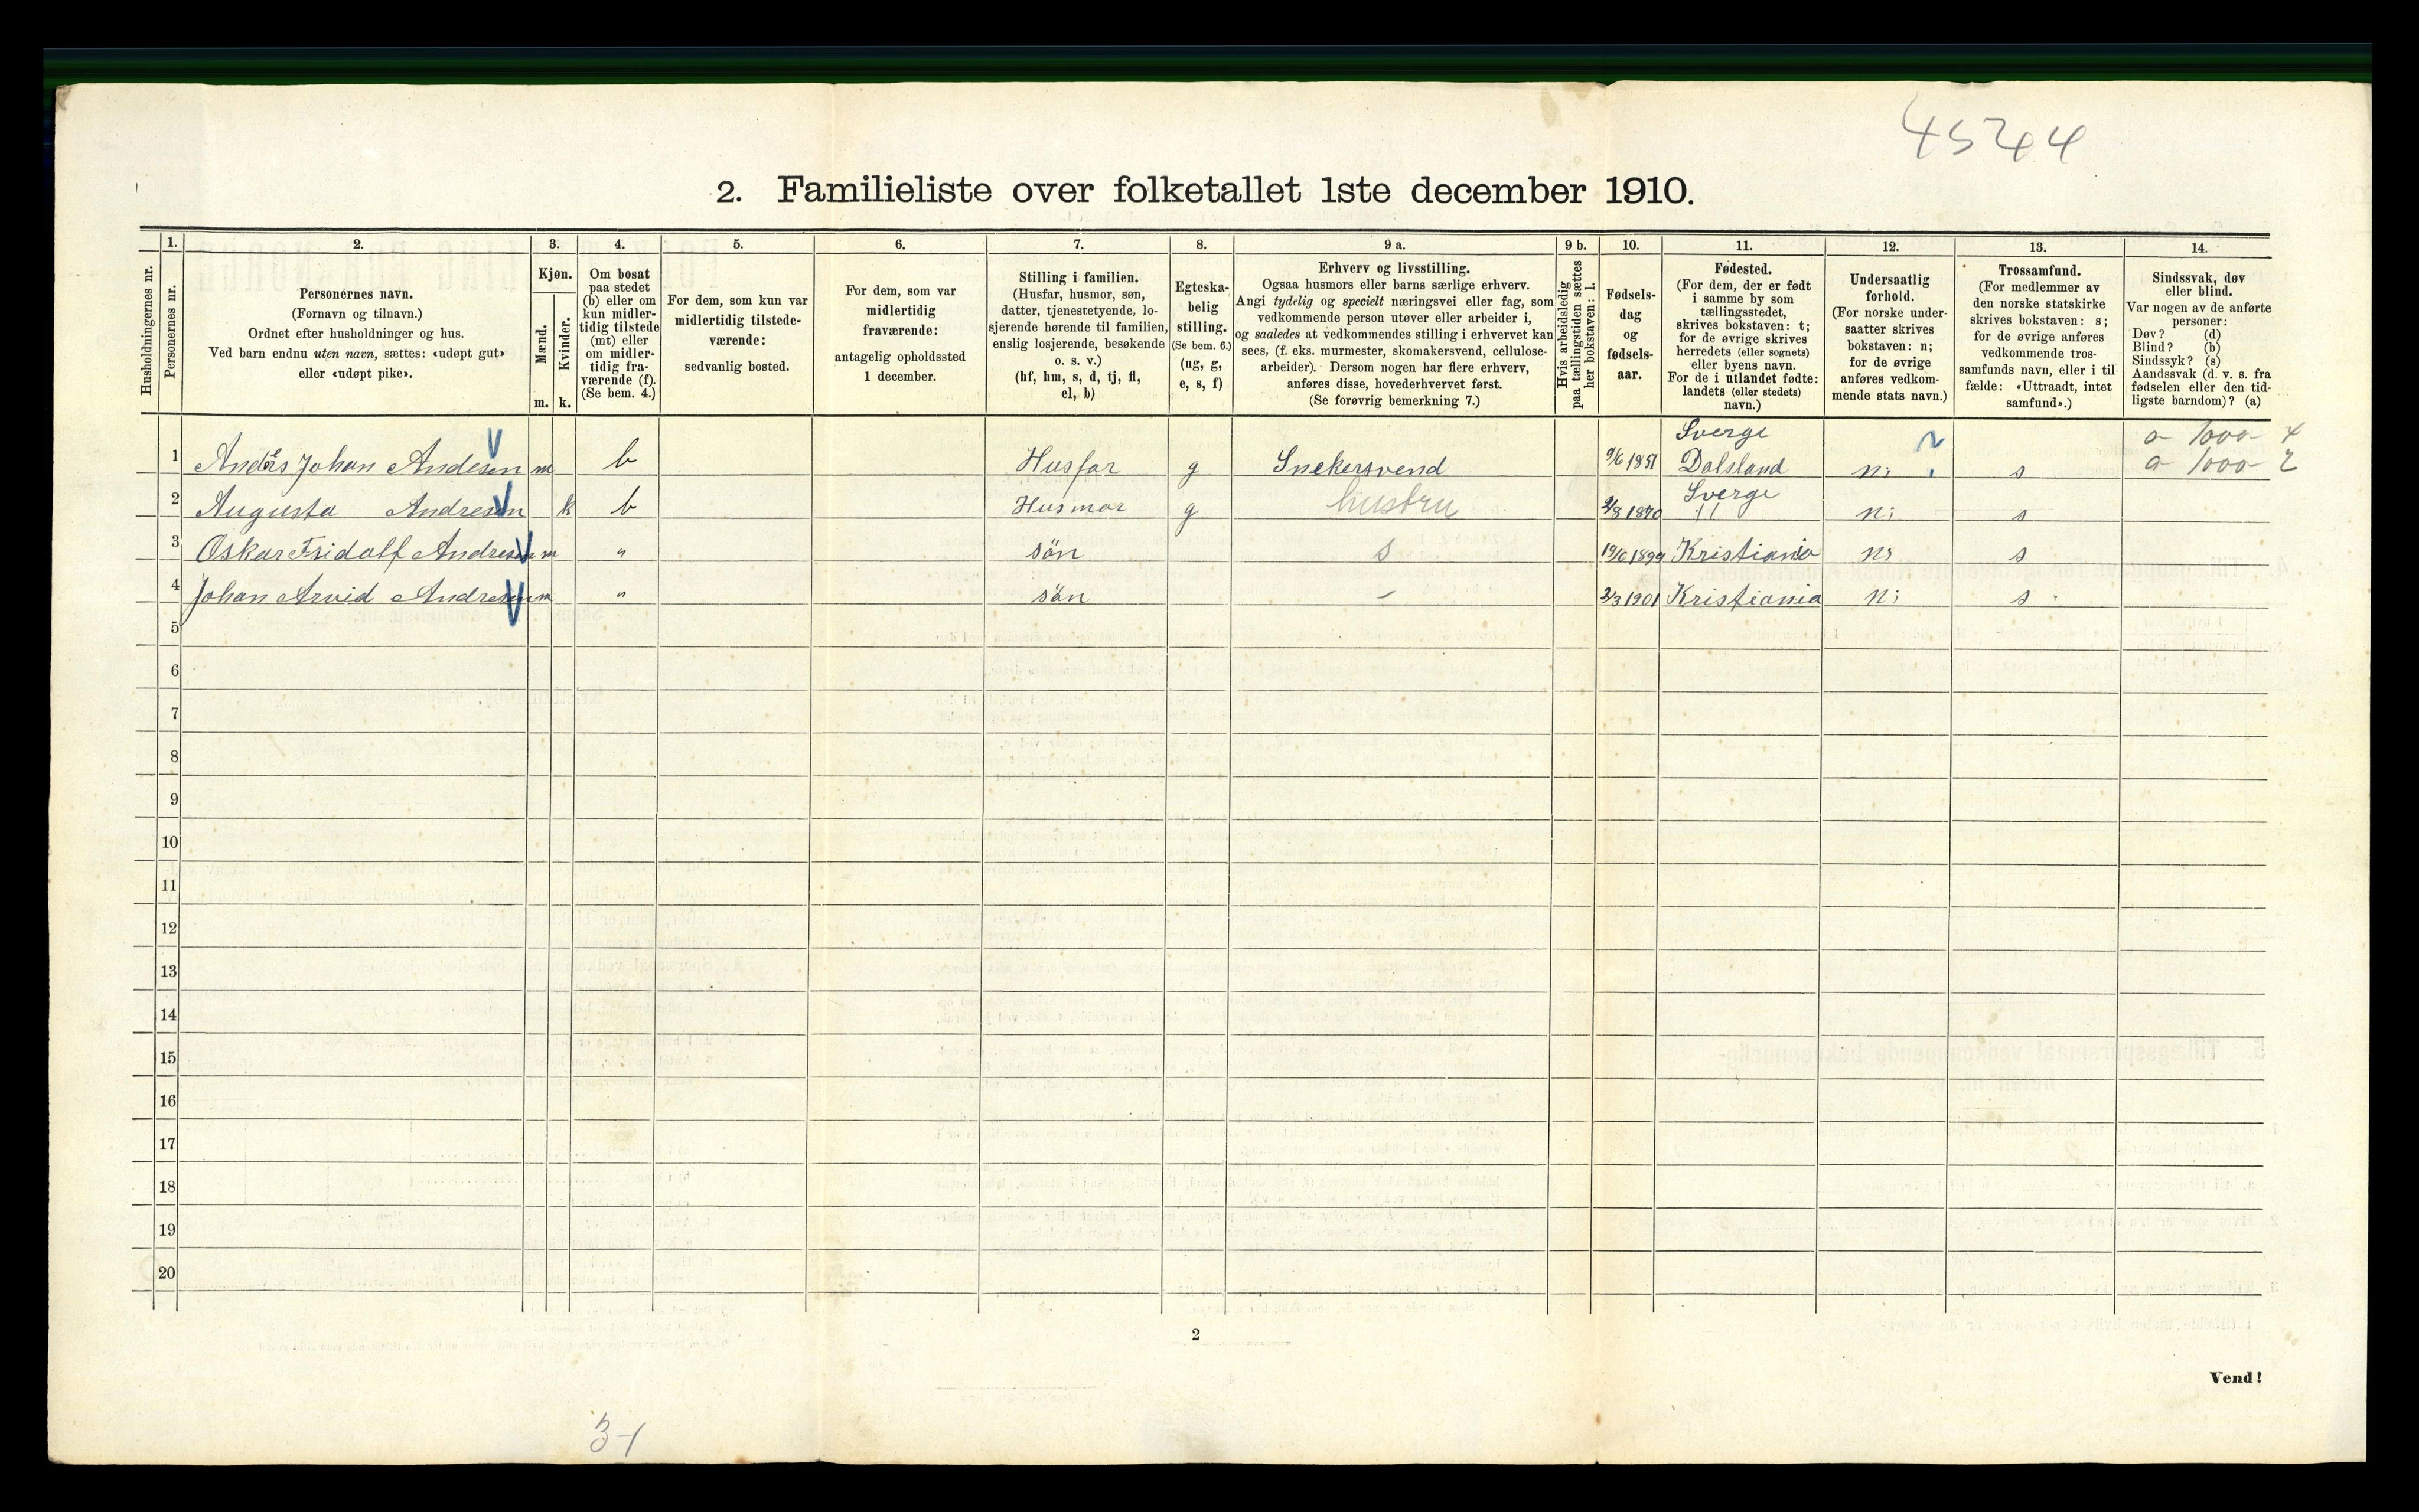 4544
2. Familieliste over folketallet 1ste december 1910.
Husholdningernes nr.
1.
Personernes nr.
2.
Personernes navn.
(Fornavn og tilnavn.)
Ordnet efter husholdninger og hus.
Ved barn endnu uten navn, sættes: «udøpt gut»
eller «udøpt pike».
3.
Kjøn.
Mænd.
Kvinder.
m.
k.
4.
Om bosat
paa stedet
(b) eller om
kun midler-
tidig tilstede
(mt) eller
om midler-
tidig fra-
værende (f).
(Se bem. 4.)
5.
For dem, som kun var
midlertidig tilstede-
værende:
sedvanlig bosted.
6.
For dem, som var
midlertidig
fraværende:
antagelig opholdssted
1 december.
7.
Stilling i familien.
(Husfar, husmor, søn,
datter, tjenestetyende, lo-
sjerende hørende til familien,
enslig losjerende, besøkende
o. s. v.)
(hf, hm, s, d, tj, fl,
el, b)
8.
Egteska-
belig
stilling.
(Se bem. 6.)
(ug, g,
e, s, f)
9 a.
Erhverv og livsstilling.
Ogsaa husmors eller barns særlige erhverv.
Angi tydelig og specielt næringsvei eller fag, som
vedkommende person utøver eller arbeider i,
og saaledes at vedkommendes stilling i erhvervet kan
sees, (f. eks. murmester, skomakersvend, cellulose-
arbeider). Dersom nogen har flere erhverv,
anføres disse, hovederhvervet først.
(Se forøvrig bemerkning 7.)
9 b.
Hvis arbeidsledig
paa tællingstiden sættes
her bokstaven: l.
10.
Fødsels-
dag
og
fødsels-
aar.
11.
Fødested.
(For dem, der er født
i samme by som
tællingsstedet,
skrives bokstaven: t;
for de øvrige skrives
herredets (eller sognets)
eller byens navn.
For de i utlandet fødte:
landets (eller stedets)
navn.)
12.
Undersaatlig
forhold.
(For norske under-
saatter skrives
bokstaven: n;
for de øvrige
anføres vedkom-
mende stats navn.)
13.
Trossamfund.
(For medlemmer av
den norske statskirke
skrives bokstaven: s;
for de øvrige anføres
vedkommende tros-
samfunds navn, eller i til-
fælde: «Uttraadt, intet
samfund».)
14.
Sindssvak, døv
eller blind.
Var nogen av de anførte
personer:
Døv? (d)
Blind? (b)
Sindssyk? (s)
Aandssvak (d. v. s. fra
fødselen eller den tid-
ligste barndom)? (a)
Sverge a 1000 - 4
1 Anders Johan Andesen m b Husfar g Snekersvend 9/6 1851 Dalsland n; s a 1000 - 2
Sverge
2 Augusta Andresen k b Husmor g hustru 2/8 1870 " n; s
3 Oskar Fridolf Andresen m " sön s 19/6 1899 Kristiania n; s
4 Johan Arvid Andresen m " sön - 2/3 1901 Kristiania n; s
5
6
7
8
9
10
11
12
13
14
15
16
17
18
19
20
2
Vend!
3-1